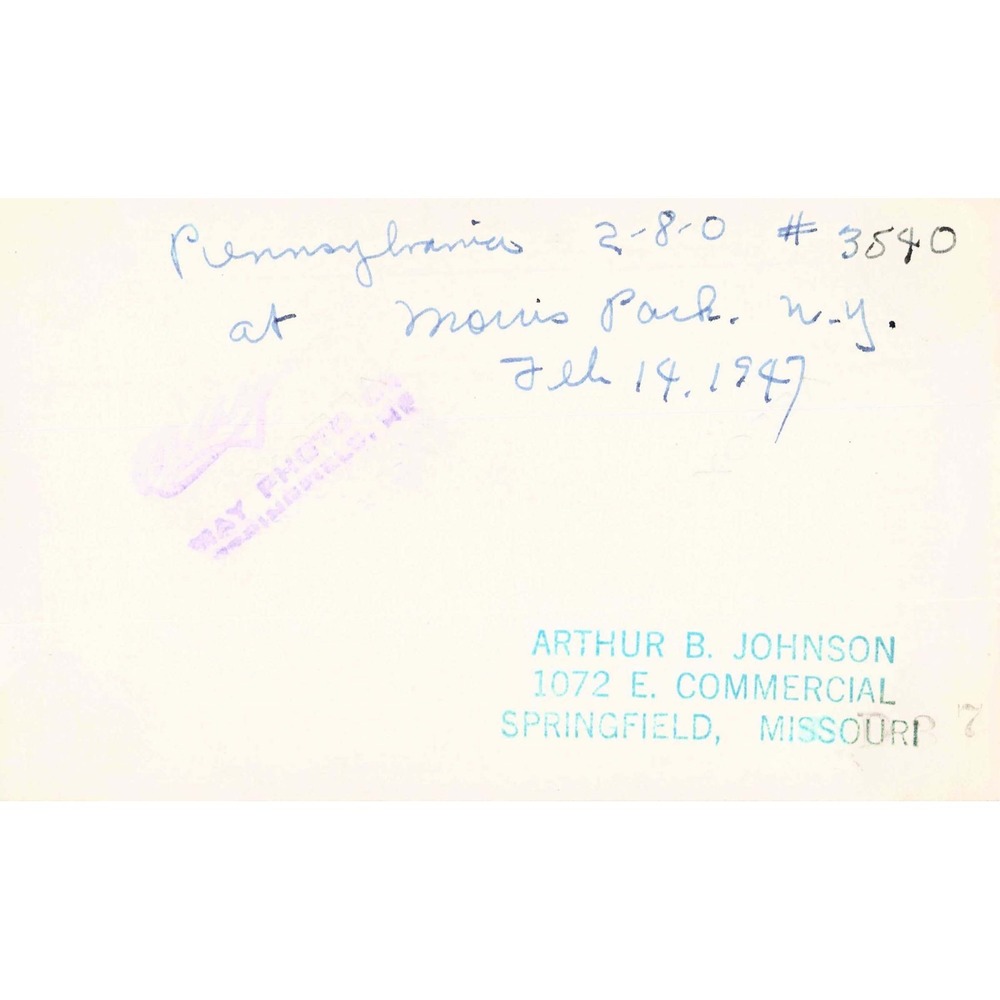 Pennsylvania 2-8-0 # 3540
at Morris Park. N.Y.
Feb 14, 1947
PHOTO
ARTHUR B. JOHNSON
1072 E. COMMERCIAL
SPRINGFIELD, MISSOURI
7